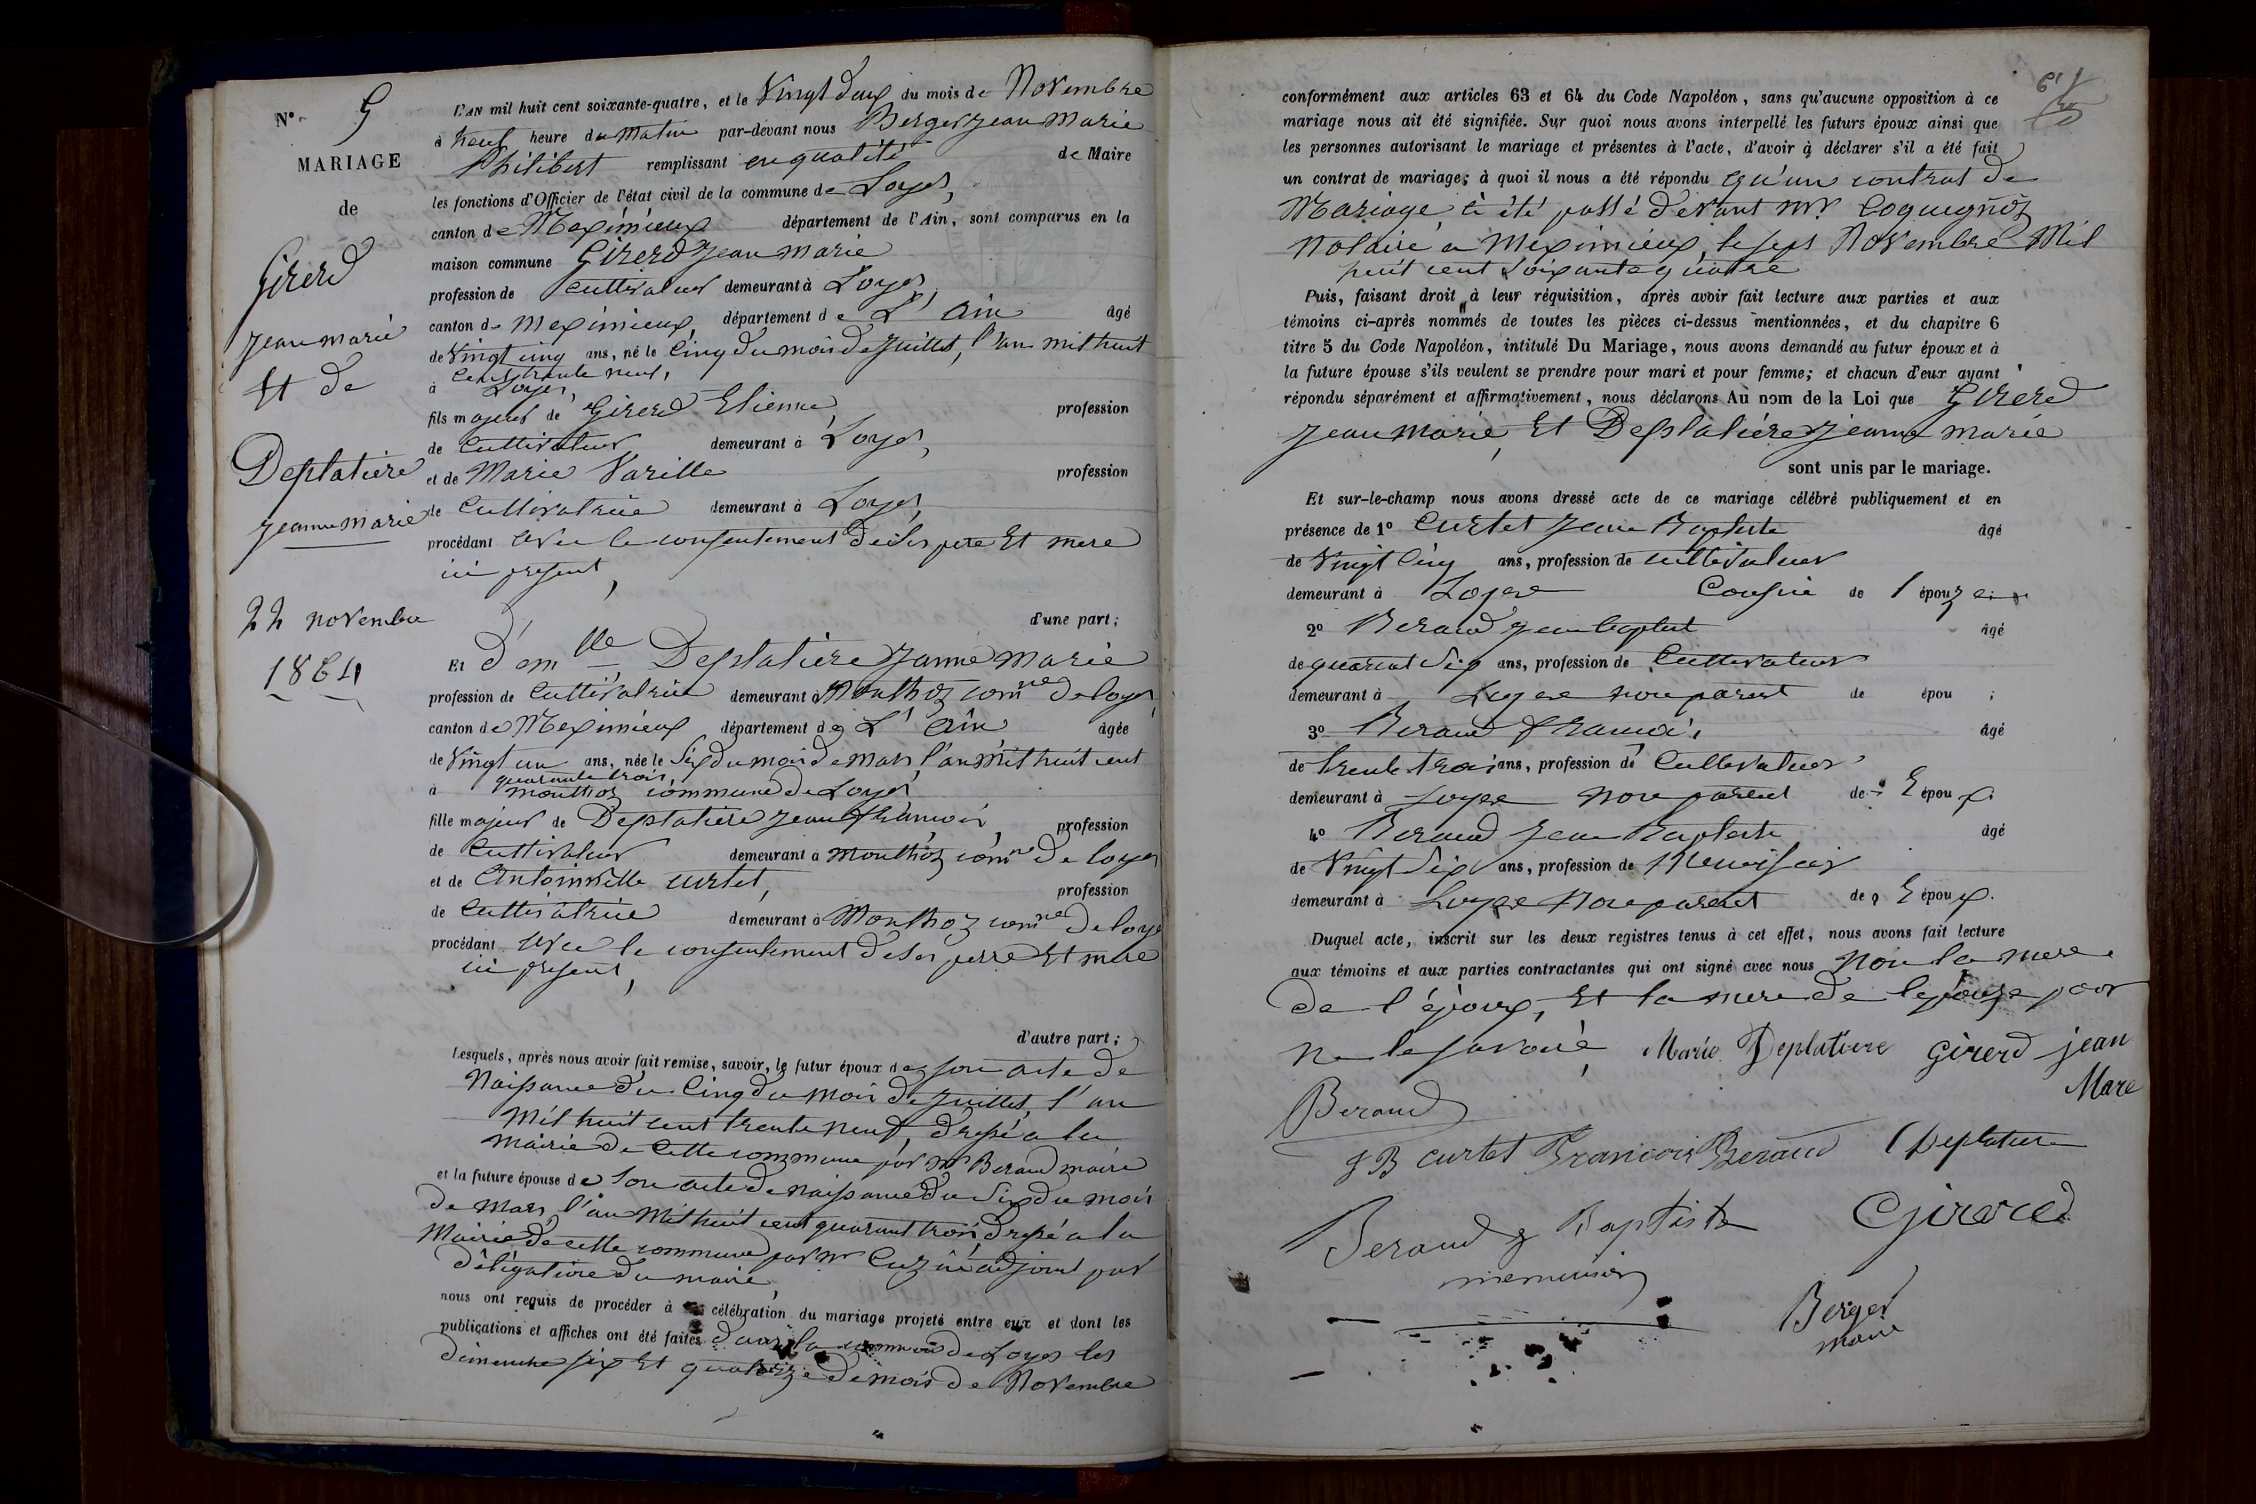 N° 9
MARIAGE
de
Girerd
Jean marie
Et de
Deplatière
Jeanne marie
22 novembre
1864
L'AN mil huit cent soixante-quatre, et le Vingt deux du mois de Novembre
à neuf heure du Matin par-devant nous Berger Jean Marie
Philibert remplissant en qualité de Maire
les fonctions d'Officier de l'état civil de la commune de Loyes,
canton de Meximieux département de l'Ain, sont comparus en la
maison commune Girerd Jean marie
profession de Cultivateur demeurant à Loyes,
canton de Meximieux département de L'Ain âgé
de Vingt cinq ans, né le Cinq du mois de Juillet, l'an mil huit
cent trente neuf,
à Loyes,
fils majeur de Girerd Etienne, profession
de Cultivateur demeurant à Loyes,
et de Marie Varille profession
de Cultivatrice demeurant à Loyes,
procédant avec le consentement de ses pere Et mere
ici present,
d'une part;
Et dem lle Deplatière Jeanne marie
profession de Cultivatrice demeurant à Monthoz comne de loyes,
canton de Meximieux département de L'Ain âgée
de Vingt un ans, née le Six du mois de mars, l'an mil huit cent
quarante trois,
à monthoz commune de Loyes
fille majeur de Deplatière Jean francois, profession
de Cultivateur demeurant à monthoz comne de loyes
et de Antoinnette curtet, profession
de Cultivatrice demeurant à Monthoz comne de loyes
procédant avec le consentement de ses perre Et mere
ici present,
d'autre part;
Lesquels, après nous avoir fait remise, savoir, le futur époux de son acte de
Naissance du Cinq du mois de Juillet, l'an
Mil huit cent trente neuf, dressé a la
mairie de Cette commune par mr Beraud maire
et la future épouse de son acte de naissance du Six du mois
de Mars, l'an Mil huit cent quarant trois, dressé a la
Mairie de cette commune par mr Cuzin adjoint par
délégation du maire,
nous ont requis de procéder à célébration du mariage projeté entre eux et dont les
publications et affiches ont été faites dans la commune de Loyes les
dimenche six Et quatorze de mois de Novembre
conformément aux articles 63 et 64 du Code Napoléon, sans qu'aucune opposition à ce
mariage nous ait été signifiée. Sur quoi nous avons interpellé les futurs époux ainsi que
les personnes autorisant le mariage et présentes à l'acte, d'avoir à déclarer s'il a été fait
un contrat de mariage; à quoi il nous a été répondu qu'un contrat de
Mariage à été passé devant mr. Coquegnioz
Notaire a Meximieux, le sept Novembre Mil
huit cent soixante quatre
Puis, faisant droit à leur réquisition, après avoir fait lecture aux parties et aux
témoins ci-après nommés de toutes les pièces ci-dessus mentionnées, et du chapitre 6
titre 5 du Code Napoléon, intitulé Du Mariage, nous avons demandé au futur époux et à
la future épouse s'ils veulent se prendre pour mari et pour femme; et chacun d'eux ayant
répondu séparément et affirmativement, nous déclarons Au nom de la Loi que Girerd
Jean Marie, Et Deplatière Jeanne marie
sont unis par le mariage.
Et sur-le-champ nous avons dressé acte de ce mariage célébré publiquement et en
présence de 1° Curtet Jean Baptiste âgé
de Vingt Cinq ans, profession de cultivateur
demeurant à Loyes Cousin de l épouze
2° Beraud Jean Baptist âgé
de quarant Six ans, profession de Cultivateur
demeurant à Loyes non parent de épou ;
3° Beraud Francois, âgé
de trente trois ans, profession de Cultivateur
demeurant à Loyes non parent de L époux
4° Beraud Jean Baptiste âgé
de Vingt Six ans, profession de Menuisier
demeurant à Loyes Non parent de L époux.
Duquel acte, inscrit sur les deux registres tenus à cet effet, nous avons fait lecture
aux témoins et aux parties contractantes qui ont signé avec nous Non la mere
de l'époux, Et la mere de lepouse pour
ne le savoir, Marie Deplatiere Girerd jean
Mare
Beraud
J B curtet Francois Beraud Deplatiere
Beraud J Baptiste Girerd
menuisier
Berger
maire